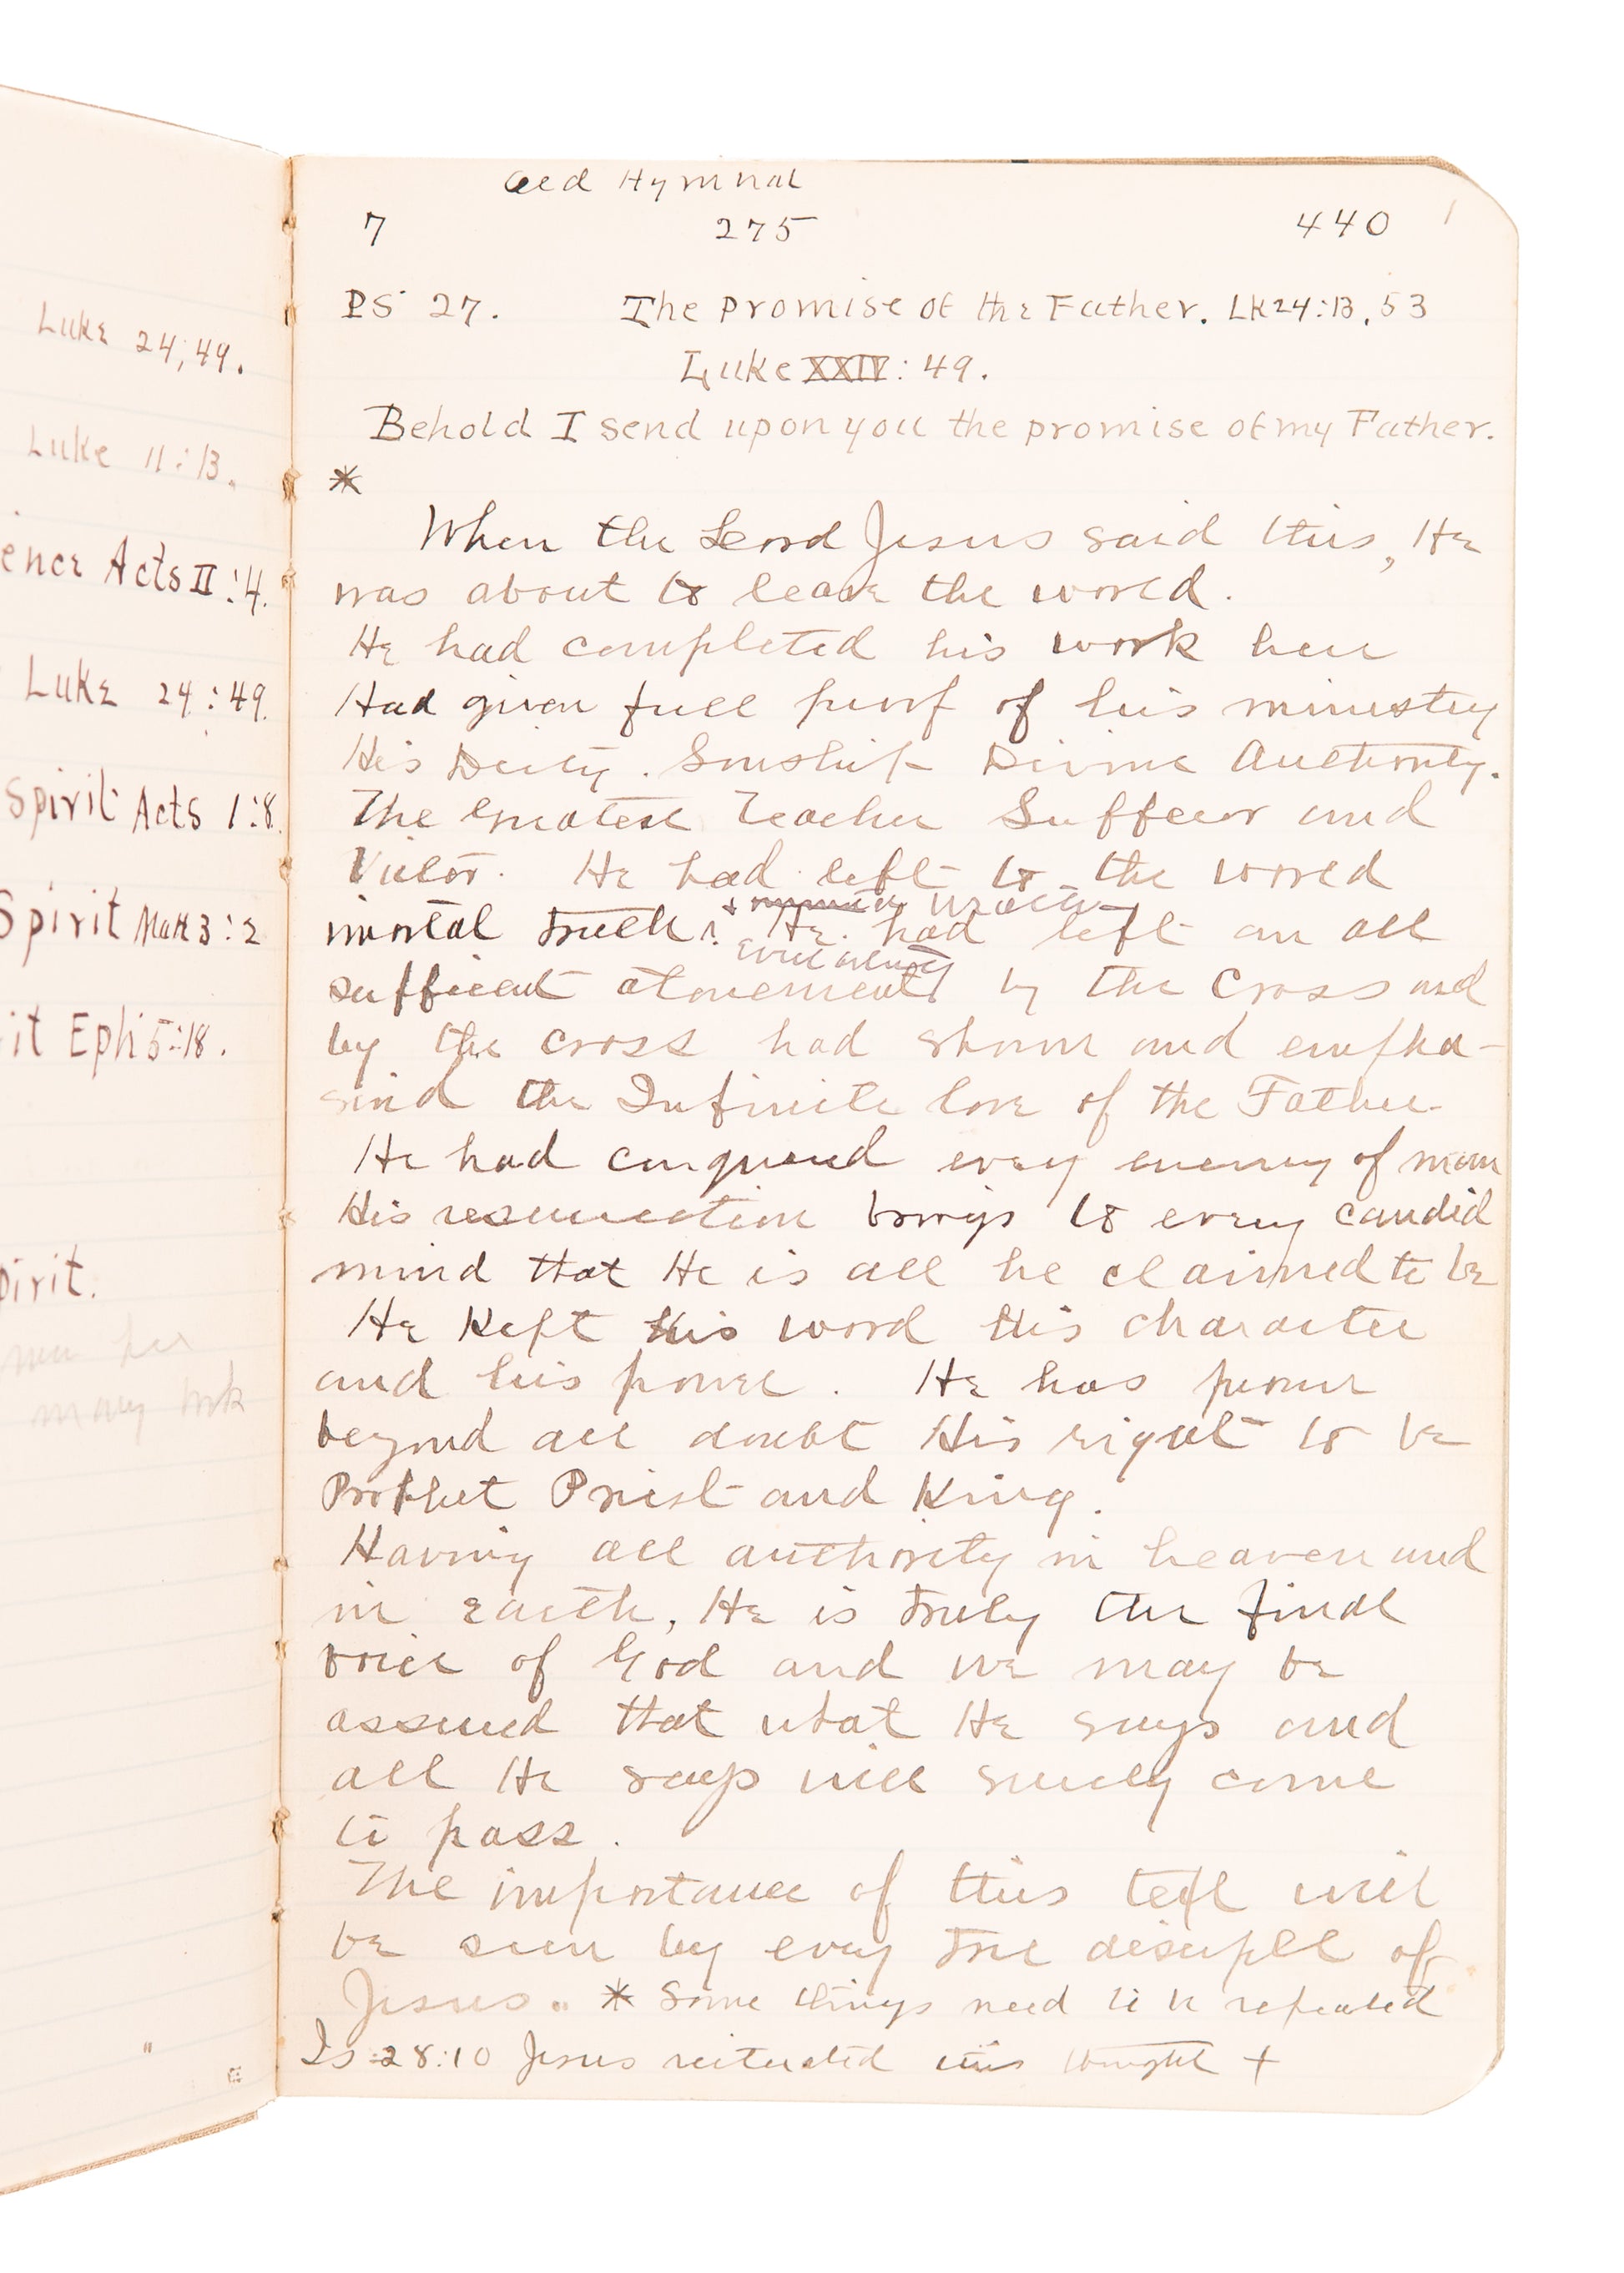 Luke 24;49.
Luke 11:13.
ence Acts II:4.
Luke 24:49.
Spirit Acts 1:8.
Spirit Matt 3:2
it Eph 5:18.
pirit.
many
Old Hymnal
7 275 440 1
PS 27. The Promise of the Father. LK 24:13, 53
Luke XXIV: 49.
Behold I send upon you the promise of my Father.
*
When the Lord Jesus said this, He
was about to leave the world.
He had completed his work here
Had given full proof of his ministry
His Deity. Sonship Divine Authority.
The Greatest Teacher Sufferer and
Victor. He had left to the world
imortal truth. He had left an all
sufficient atonement by the Cross and
by the cross had shown and empha-
sized the Infinite love of the Father
He had conquered every enemy of man
His resurrection brings to every candid
mind that He is all he claimed to be
He Kept his word his character
and his power. He has
beyond all doubt His right to be
Prophet Priest and King.
Having all authority in heaven and
in earth, He is truly the final
voice of God and we may be
assured that what He says and
all He says will surely come
to pass.
The importance of this text will
be seen by every true disciple of
Jesus. * Some things need to be repeated
Is 28:10 Jesus reiterated this thought +